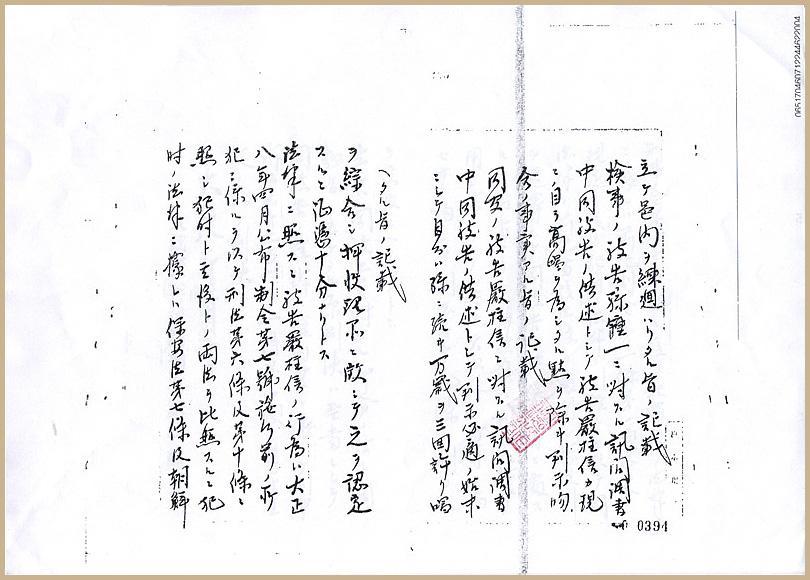 立テ邑内ヲ練廻ハリタル旨ノ記載
検事ノ被告孫鍾一ニ対スル訊問調書
中同被告ノ供述トシテ被告嚴柱信カ現
ニ自ラ高唱ヲ為シタル點ヲ除キ判示吻
合ノ事実アル旨ノ記載
同官ノ被告嚴柱信ニ対スル訊問調書
中同被告ノ供述トシテ判示必適ノ始末
ニシテ自分ハ孫ニ続キ万歳ヲ三回許リ唱
ヘタル旨ノ記載
ヲ綜合シ押収現品ニ徴シテ之ヲ認定
スルニ証憑十分ナリトス
法律ニ照スニ被告嚴柱信ノ行為ハ大正
八年四月公布制令第七號施行前ノ所
犯ニ係ルヲ以テ刑法第六條及第十條ニ
照シ犯時ト其後トノ両法ヲ比照スルニ犯
時ノ法律ニ據レハ保安法第七條及朝鮮
0394